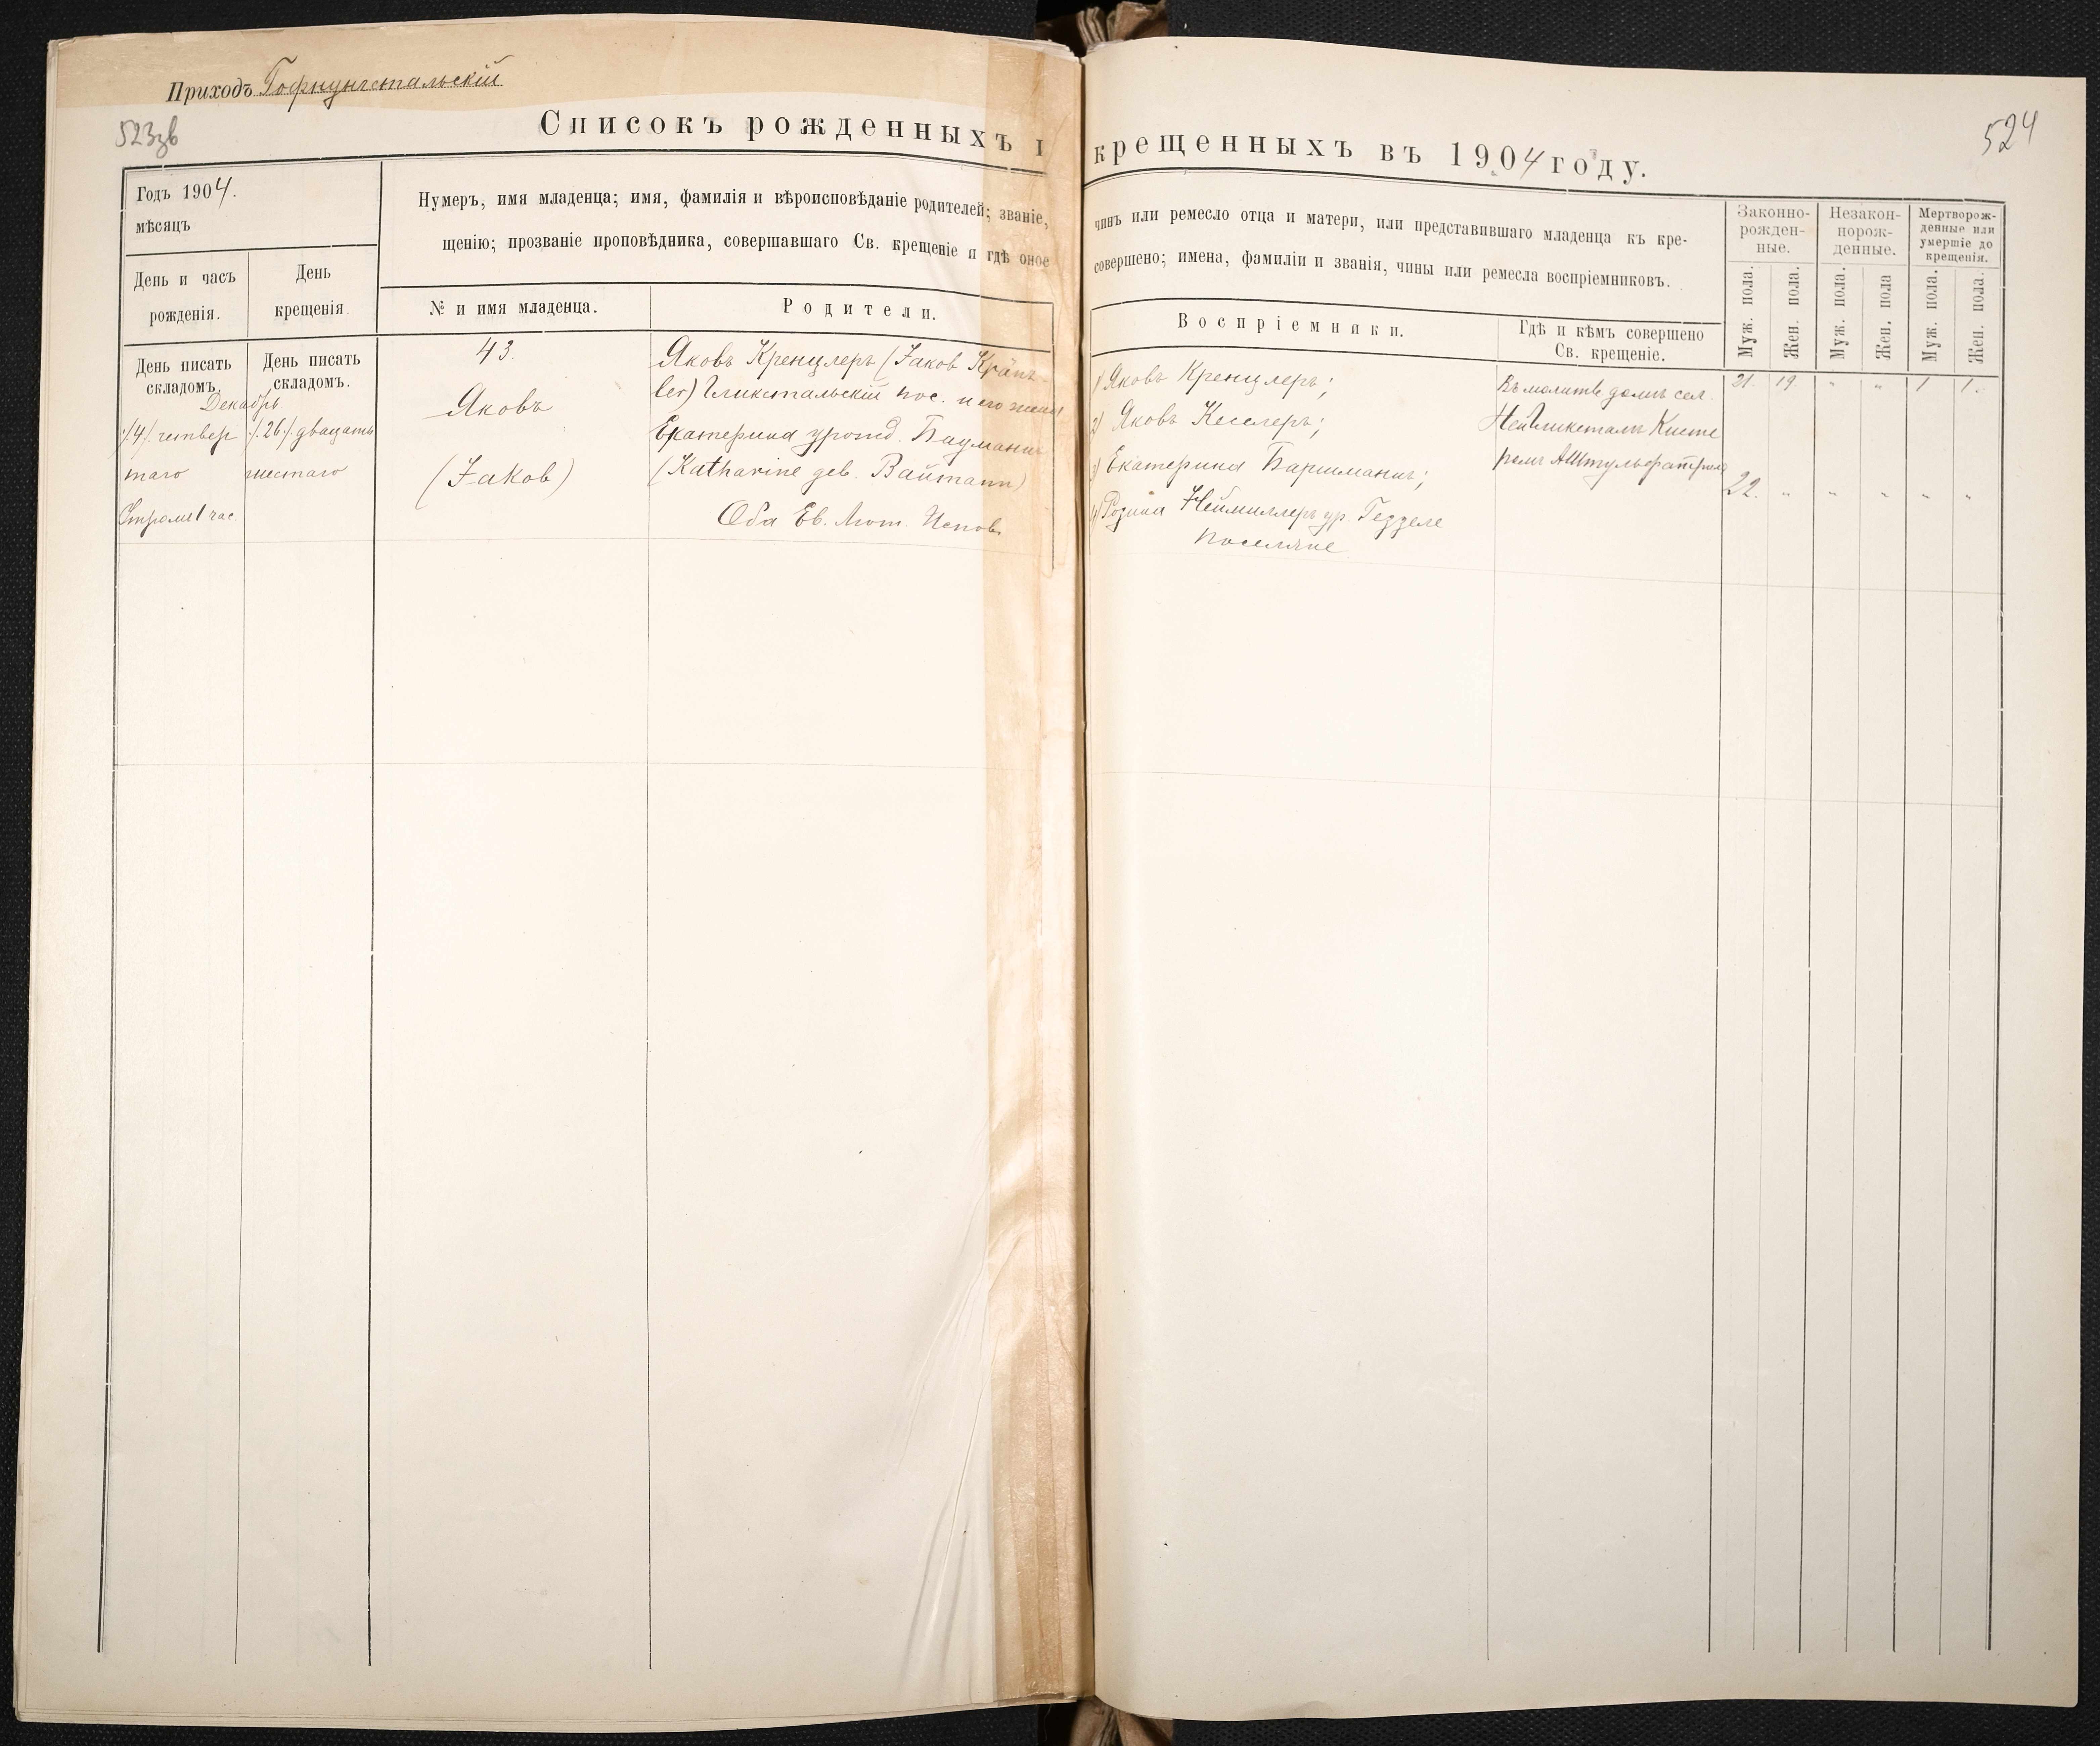 Приходъ Гофнунгстальскій
523зв
524
Списокъ рожденныхъ і крещенныхъ въ 1904 году.
Годъ 1904.
мѣсяцъ
Нумеръ, имя младенца; имя, фамилія и вѣроисповѣданіе родителей; званіе, чинъ или ремесло отца и матери, или представившаго младенца къ кре-
щенію; прозваніе проповѣдника, совершавшаго Св. крещеніе и гдѣ оное совершено; имена, фамиліи и званія, чины или ремесла воспріемниковъ.
День и часъ
рожденія.
День
крещенія.
№ и имя младенца.
Родители.
Воспріемники.
Гдѣ и кѣмъ совершено
Св. крещеніе.
Законно-
рожден-
ные.
Незакон-
норож-
денные.
Мертворож-
денные или
умершіе до
крещенія.
Муж. пола.
Жен. пола.
Муж. пола.
Жен. пола
Муж. пола.
Жен. пола.
День писать
складомъ.
День писать
складомъ.
Декабрь.
/:4:/ четвер
таго
Утромъ 1 час.
/:26:/ двадцать
шестаго
43.
Яковъ
(Jakob)
Яковъ Кренцлеръ (Jakob Kränz-
ler) Гликстальскій пос. и его жена
Екатерина урожд. Бауманнъ
(Katharine geb. Baumann)
Оба Ев. Лют. Испов.
1) Яковъ Кренцлеръ;
2) Яковъ Кесслеръ;
3) Екатерина Баришманнъ;
4) Розина Неймиллеръ ур. Гедзеле
поселяне
Въ молитв. домѣ сел.
Нейгликсталь Кисте
ромъ А
21. 19. " " 1 1.
22. " " " " "